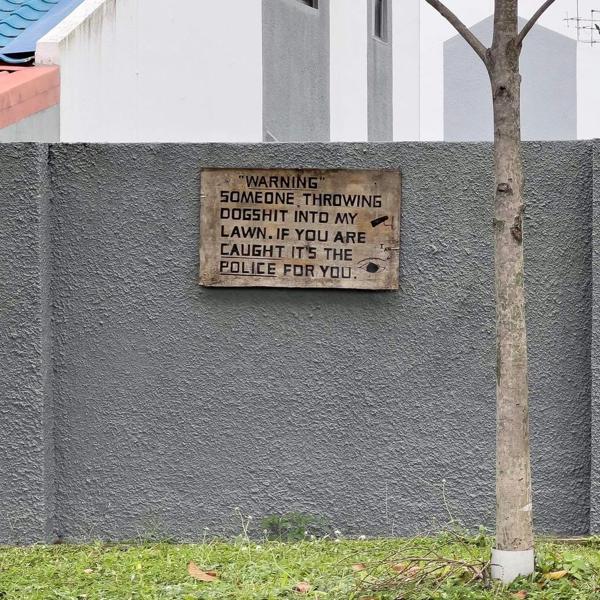 "WARNING"
SOMEONE THROWING
DOGSHIT INTO MY
LAWN. IF YOU ARE
CAUGHT IT'S THE
POLICE FOR YOU.